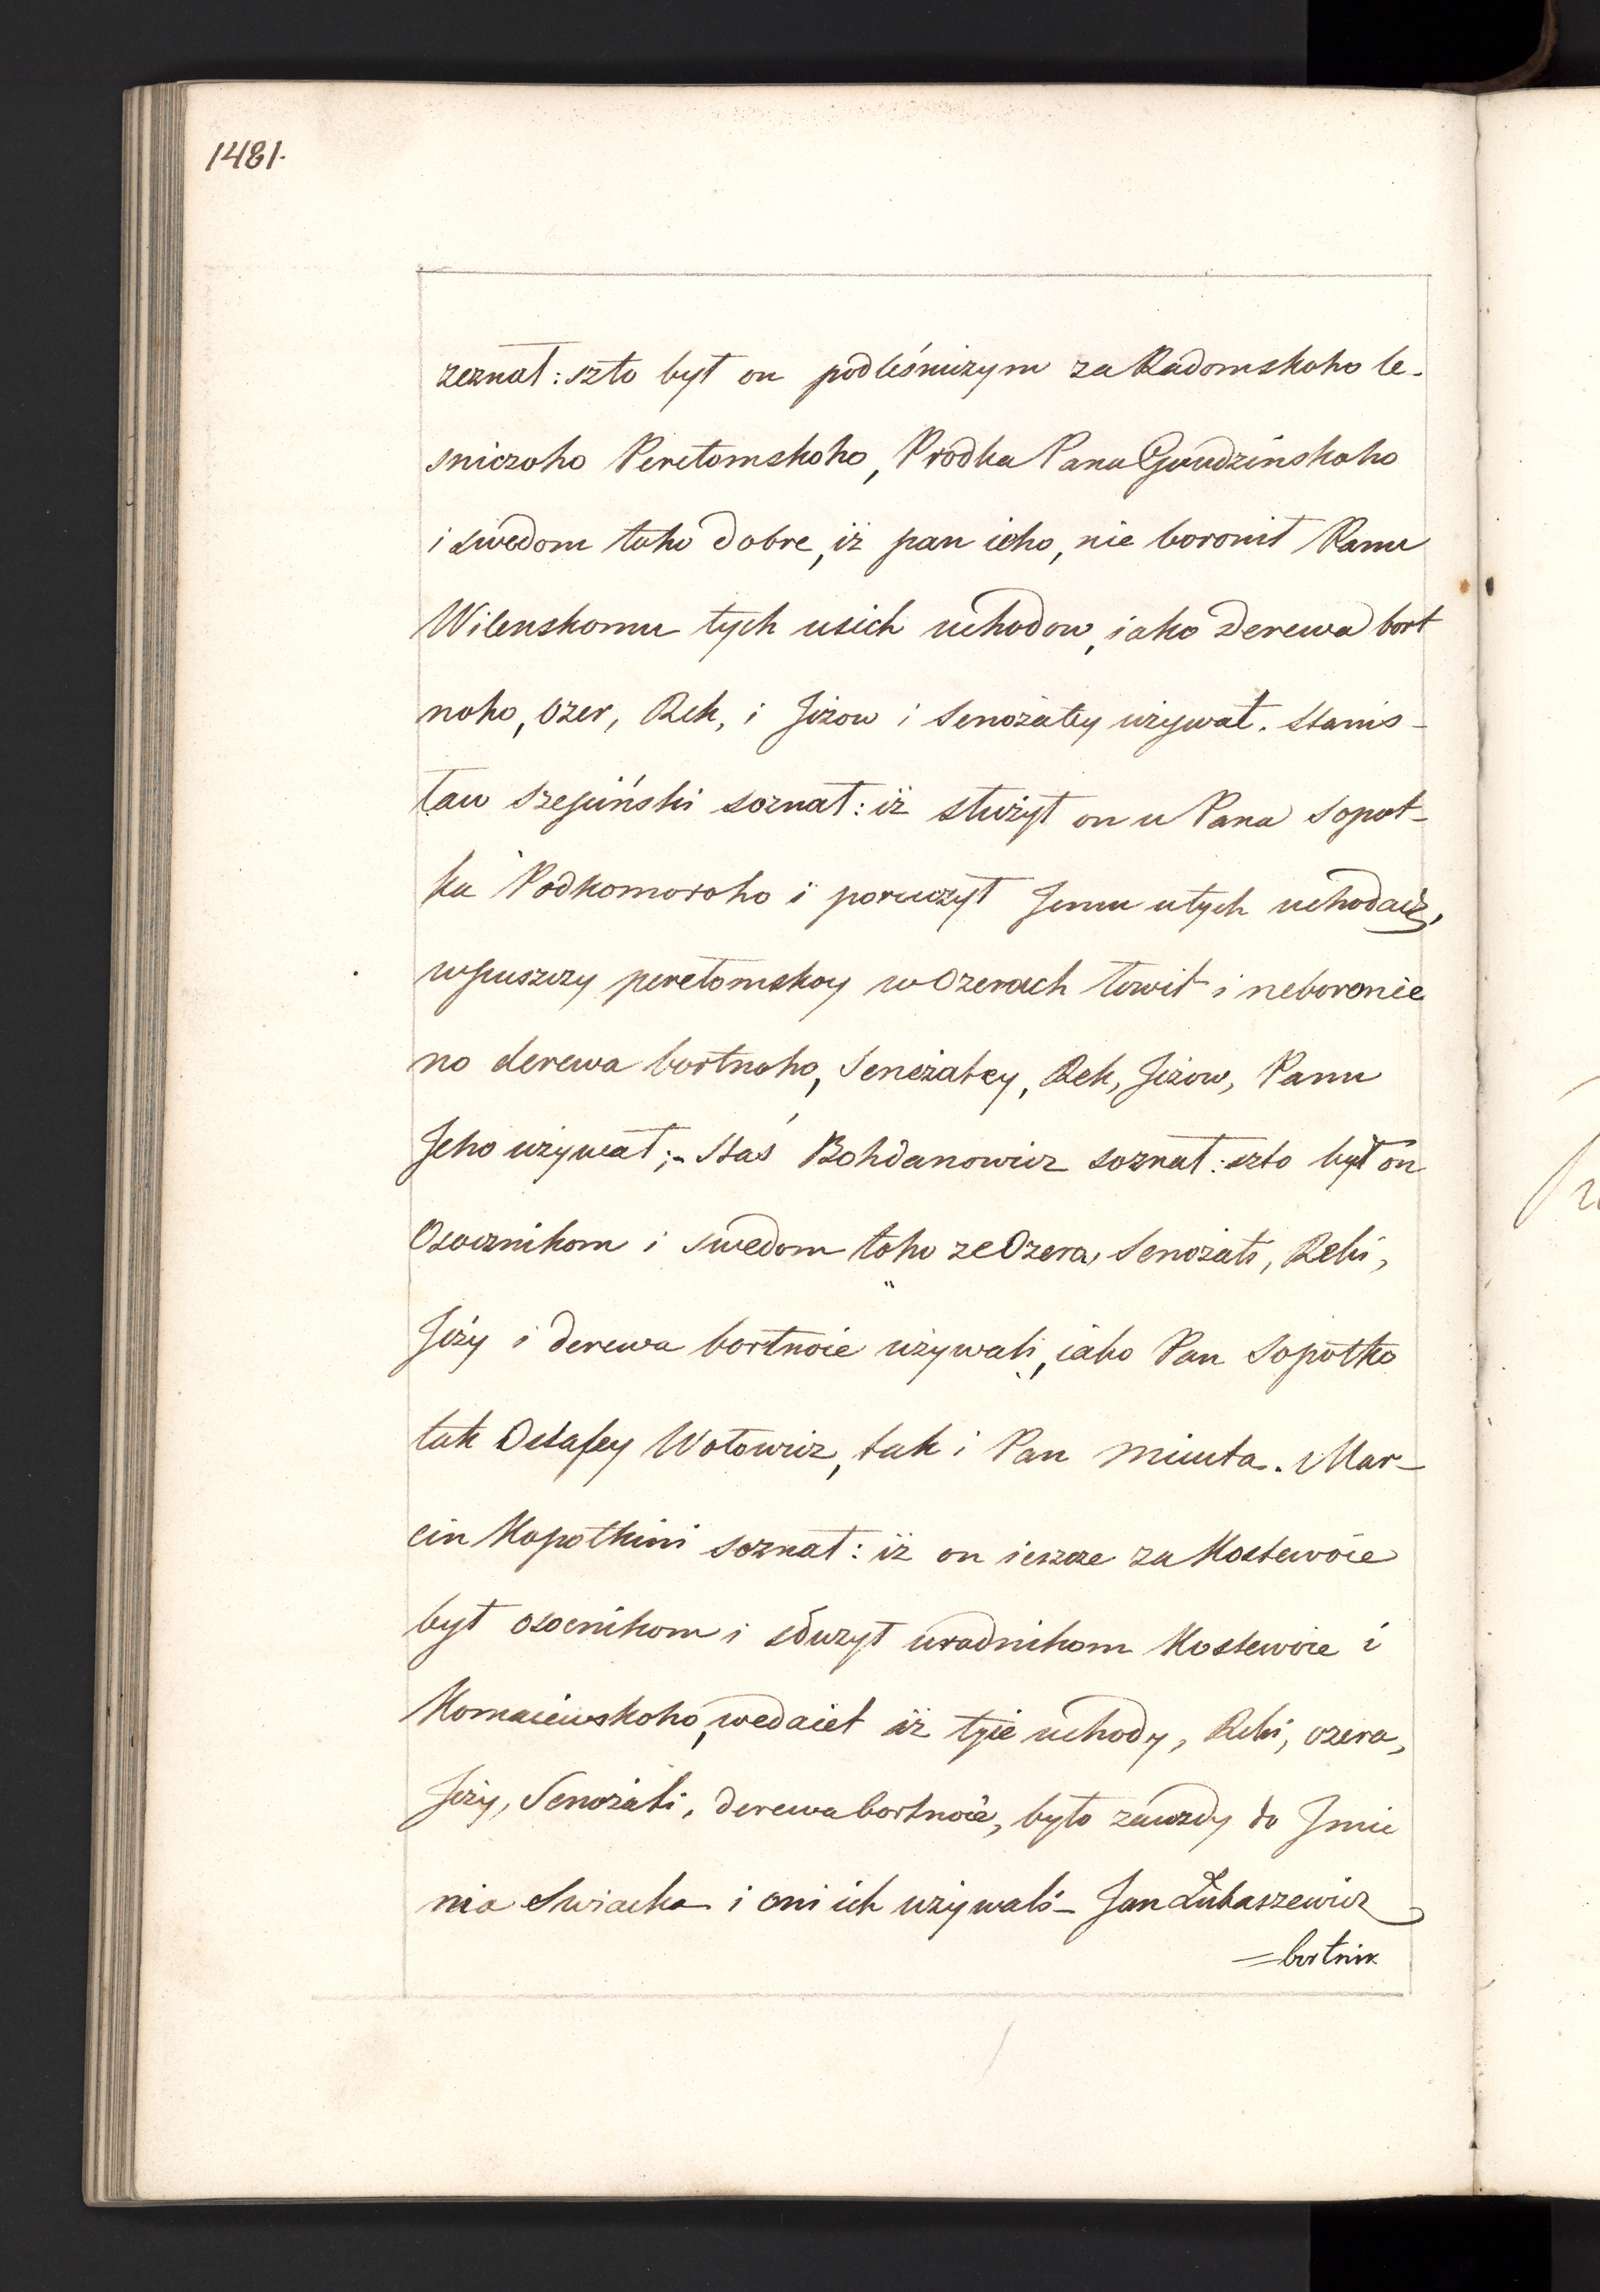 1481.
zeznał: szto był on podleśniczym za Radomskoho le-
sniczoho Perełomskoho, Prodka Pana Gwudzinskoho
i swedom toho dobre, iż pan ieho, nie boronił Panu
Wilenskomu tych usich uchodow, iako derewa bort
noho, ozer, Rek, i Jizow i Senożatey używał. Stanis-
ław Szepiński soznał: iż służył on u Pana Sopot-
ka Podkomoroho i poruczył Jemu utych uchodach,
wpuszczy perełomskoy w Ozerach łowił i neboronie
no derewa bortnoho, Senożatey, Rek, Jizow, Panu
Jeho używał;- Staś Bohdanowicz soznał: szto był on
Osocznikom i swedom toho ze Ozera, Senożati, Reki,
Jizy i derewa bortnoie używali, iako Pan Sopotko
tak Ostafey Wołowicz, tak i Pan Miuta. Mar-
cin Kopotkini soznał: iż on ieszcze za Kostewoie
był osocnikom i służył uradnikom Kostewoie i
Komaiewskoho, wedaiet iż tyie uchody, Reki, ozera,
Jezy, Senożati, derewa bortnoie, było zawzdy do Jmie
nia Swiacka i oni ich używali- Jan Łukaszewicz
=bortnik